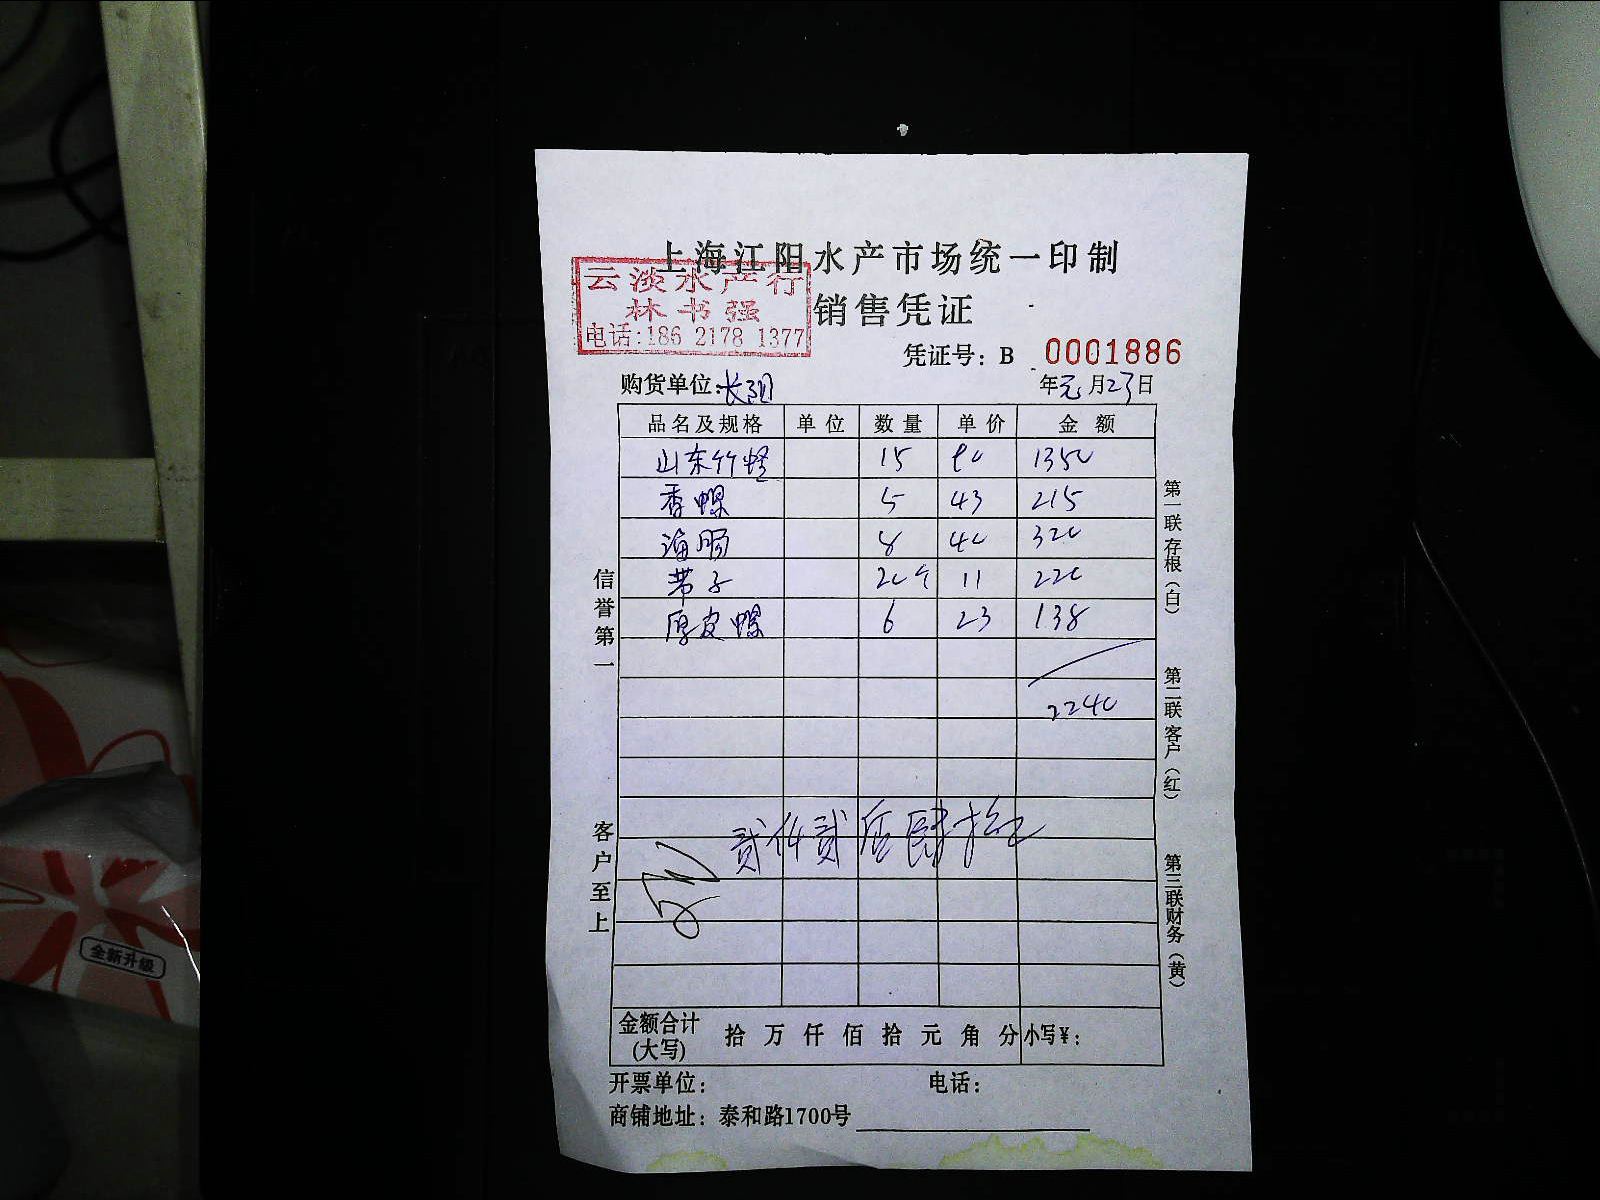 上海江阳水产市场统一印制
云淡水产行
林书强
电话:186 2178 1377
销售凭证
凭证号：B 0001886
购货单位:长阳
年元月23日
品名及规格 单位 数量 单价 金额
山东竹蛏 15 90 1350
香螺 5 43 215
海肠 8 40 320
带子 20个 11 220
厚皮螺 6 23 138
2240
贰仟贰佰肆拾元
信誉第一
客户至上
第一联存根（白）
第二联客户（红）
第三联财务（黄）
金额合计(大写) 拾 万 仟 佰 拾 元 角 分 小写¥：
开票单位： 电话：
商铺地址：泰和路1700号
全新升级